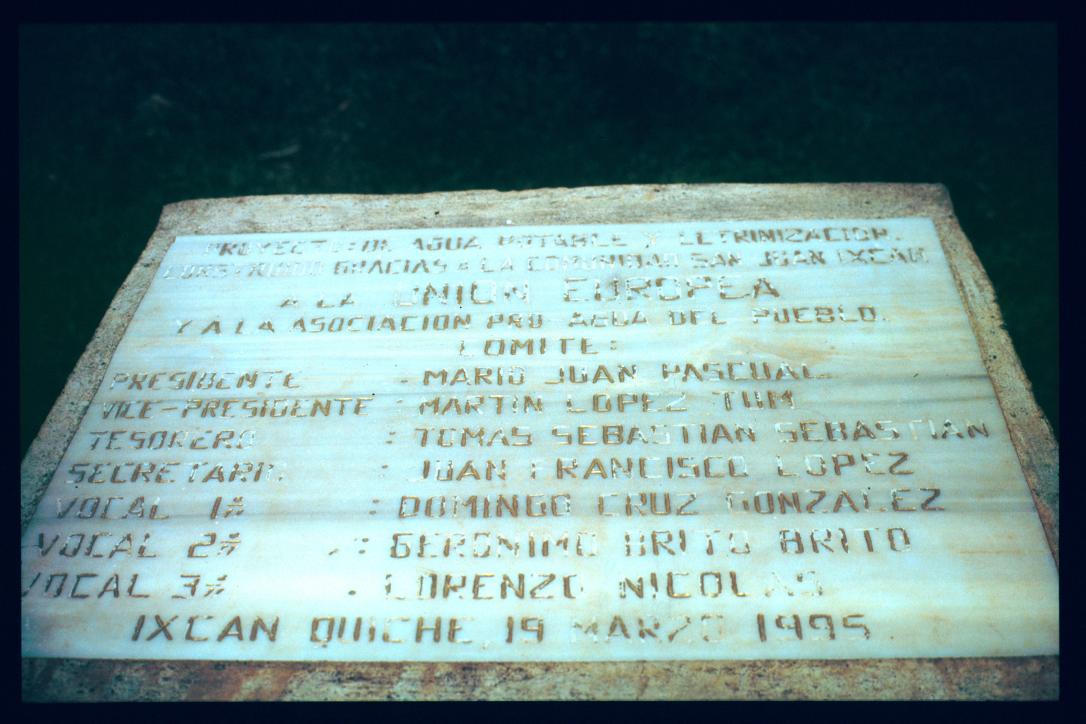 PROYECTO: DE AGUA POTABLE Y LETRINIZACION.
CONSTRUIDO GRACIAS A LA COMUNIDAD SAN JUAN IXCAN
A LA UNION EUROPEA
Y A LA ASOCIACION PRO AGUA DEL PUEBLO.
COMITE:
PRESIDENTE : MARIO JUAN PASCUAL.
VICE-PRESIDENTE : MARTIN LOPEZ TUM
TESORERO : TOMAS SEBASTIAN SEBASTIAN
SECRETARIO. : JUAN FRANCISCO LOPEZ
VOCAL 1# : DOMINGO CRUZ GONZALEZ
VOCAL 2# : GERONIMO BRITO BRITO
VOCAL 3# : LORENZO NICOLAS
IXCAN QUICHE, 19 MARZO 1995.